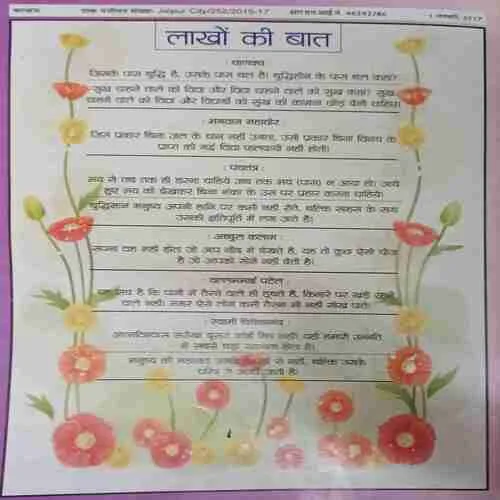 डाक पंजीयन संख्या- Jaipur City/252/2015-17
लाखों की बात
: चाणक्य :
जिसके पास बुद्धि है, उसके पास बल है। बुद्धिहीन के पास बल कहां?
सुख चाहने वाले को विद्या और विद्या चाहने वाले को सुख कहां? सुख
चाहने वाले को विद्या और विद्यार्थी को सुख की कामना छोड़ देनी चाहिए।
: भगवान महावीर :
जिस प्रकार बिना जल के धान नहीं उगता, उसी प्रकार बिना विनय के
प्राप्त की गई विद्या फलदायी नहीं होती।
: पंचतंत्र :
भय से तब तक ही डरना चाहिये जब तक भय (पास) न आया हो। आये
हुए भय को देखकर बिना शंका के उस पर प्रहार करना चाहिये।
बुद्धिमान मनुष्य अपनी हानि पर कभी नहीं रोते, बल्कि साहस के साथ
उसकी क्षतिपूर्ति में लग जाते है।
: अब्दुल कलाम :
सपना वह नहीं होता जो आप नींद में देखते है, यह तो कुछ ऐसी चीज
है जो आपको सोने नहीं देती है।
पटेल :
यह सच है कि पानी में तैरने वाले ही डूबते हैं, किनारे पर खड़े रहने
वाले नहीं। मगर ऐसे लोग कभी तैरना भी नहीं सीख पाते।
: स्वामी विवेकानंद :
आत्मविश्वास सरीखा दूसरा कोई मित्र नहीं। यही हमारी उन्नति
में सबसे बड़ा सहायक होता है।
मनुष्य की महानता उसके से नहीं, बल्कि उसके
चरित्र से आंकी जाती है।